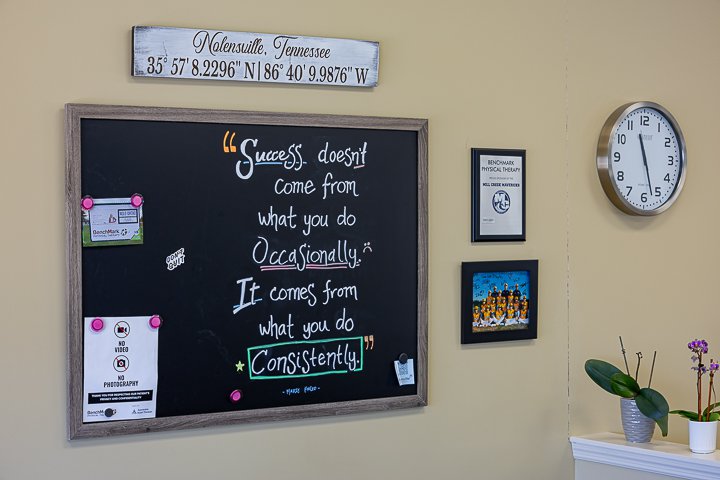 Nolensville, Tennessee
35° 57' 8.2296" N | 86° 40' 9.9876" W
"Success doesn't
come from
what you do
Occasionally.
It comes from
what you do
Consistently."
BenchMark
PHYSICAL THERAPY
NO
VIDEO
NO
PHOTOGRAPHY
THANK YOU FOR RESPECTING OUR PATIENT'S
PRIVACY AND CONFIDENTIALITY
BenchMark
BENCHMARK
PHYSICAL THERAPY
MILL CREEK MAVERICKS
12
1
2
3
4
5
6
7
8
9
10
11